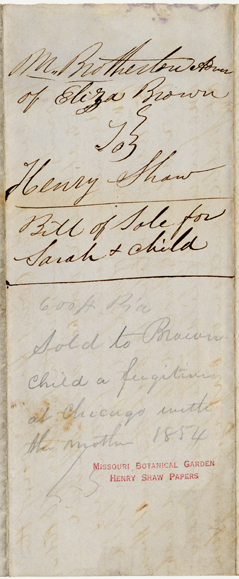 M. Brotherton Adm
of Eliza Brown
To
Henry Shaw
Bill of Sale for
Sarah & child
Sold to Brown
Child a fugitive
at Chicago with
the mother 1854
MISSOURI BOTANICAL GARDEN
HENRY SHAW PAPERS